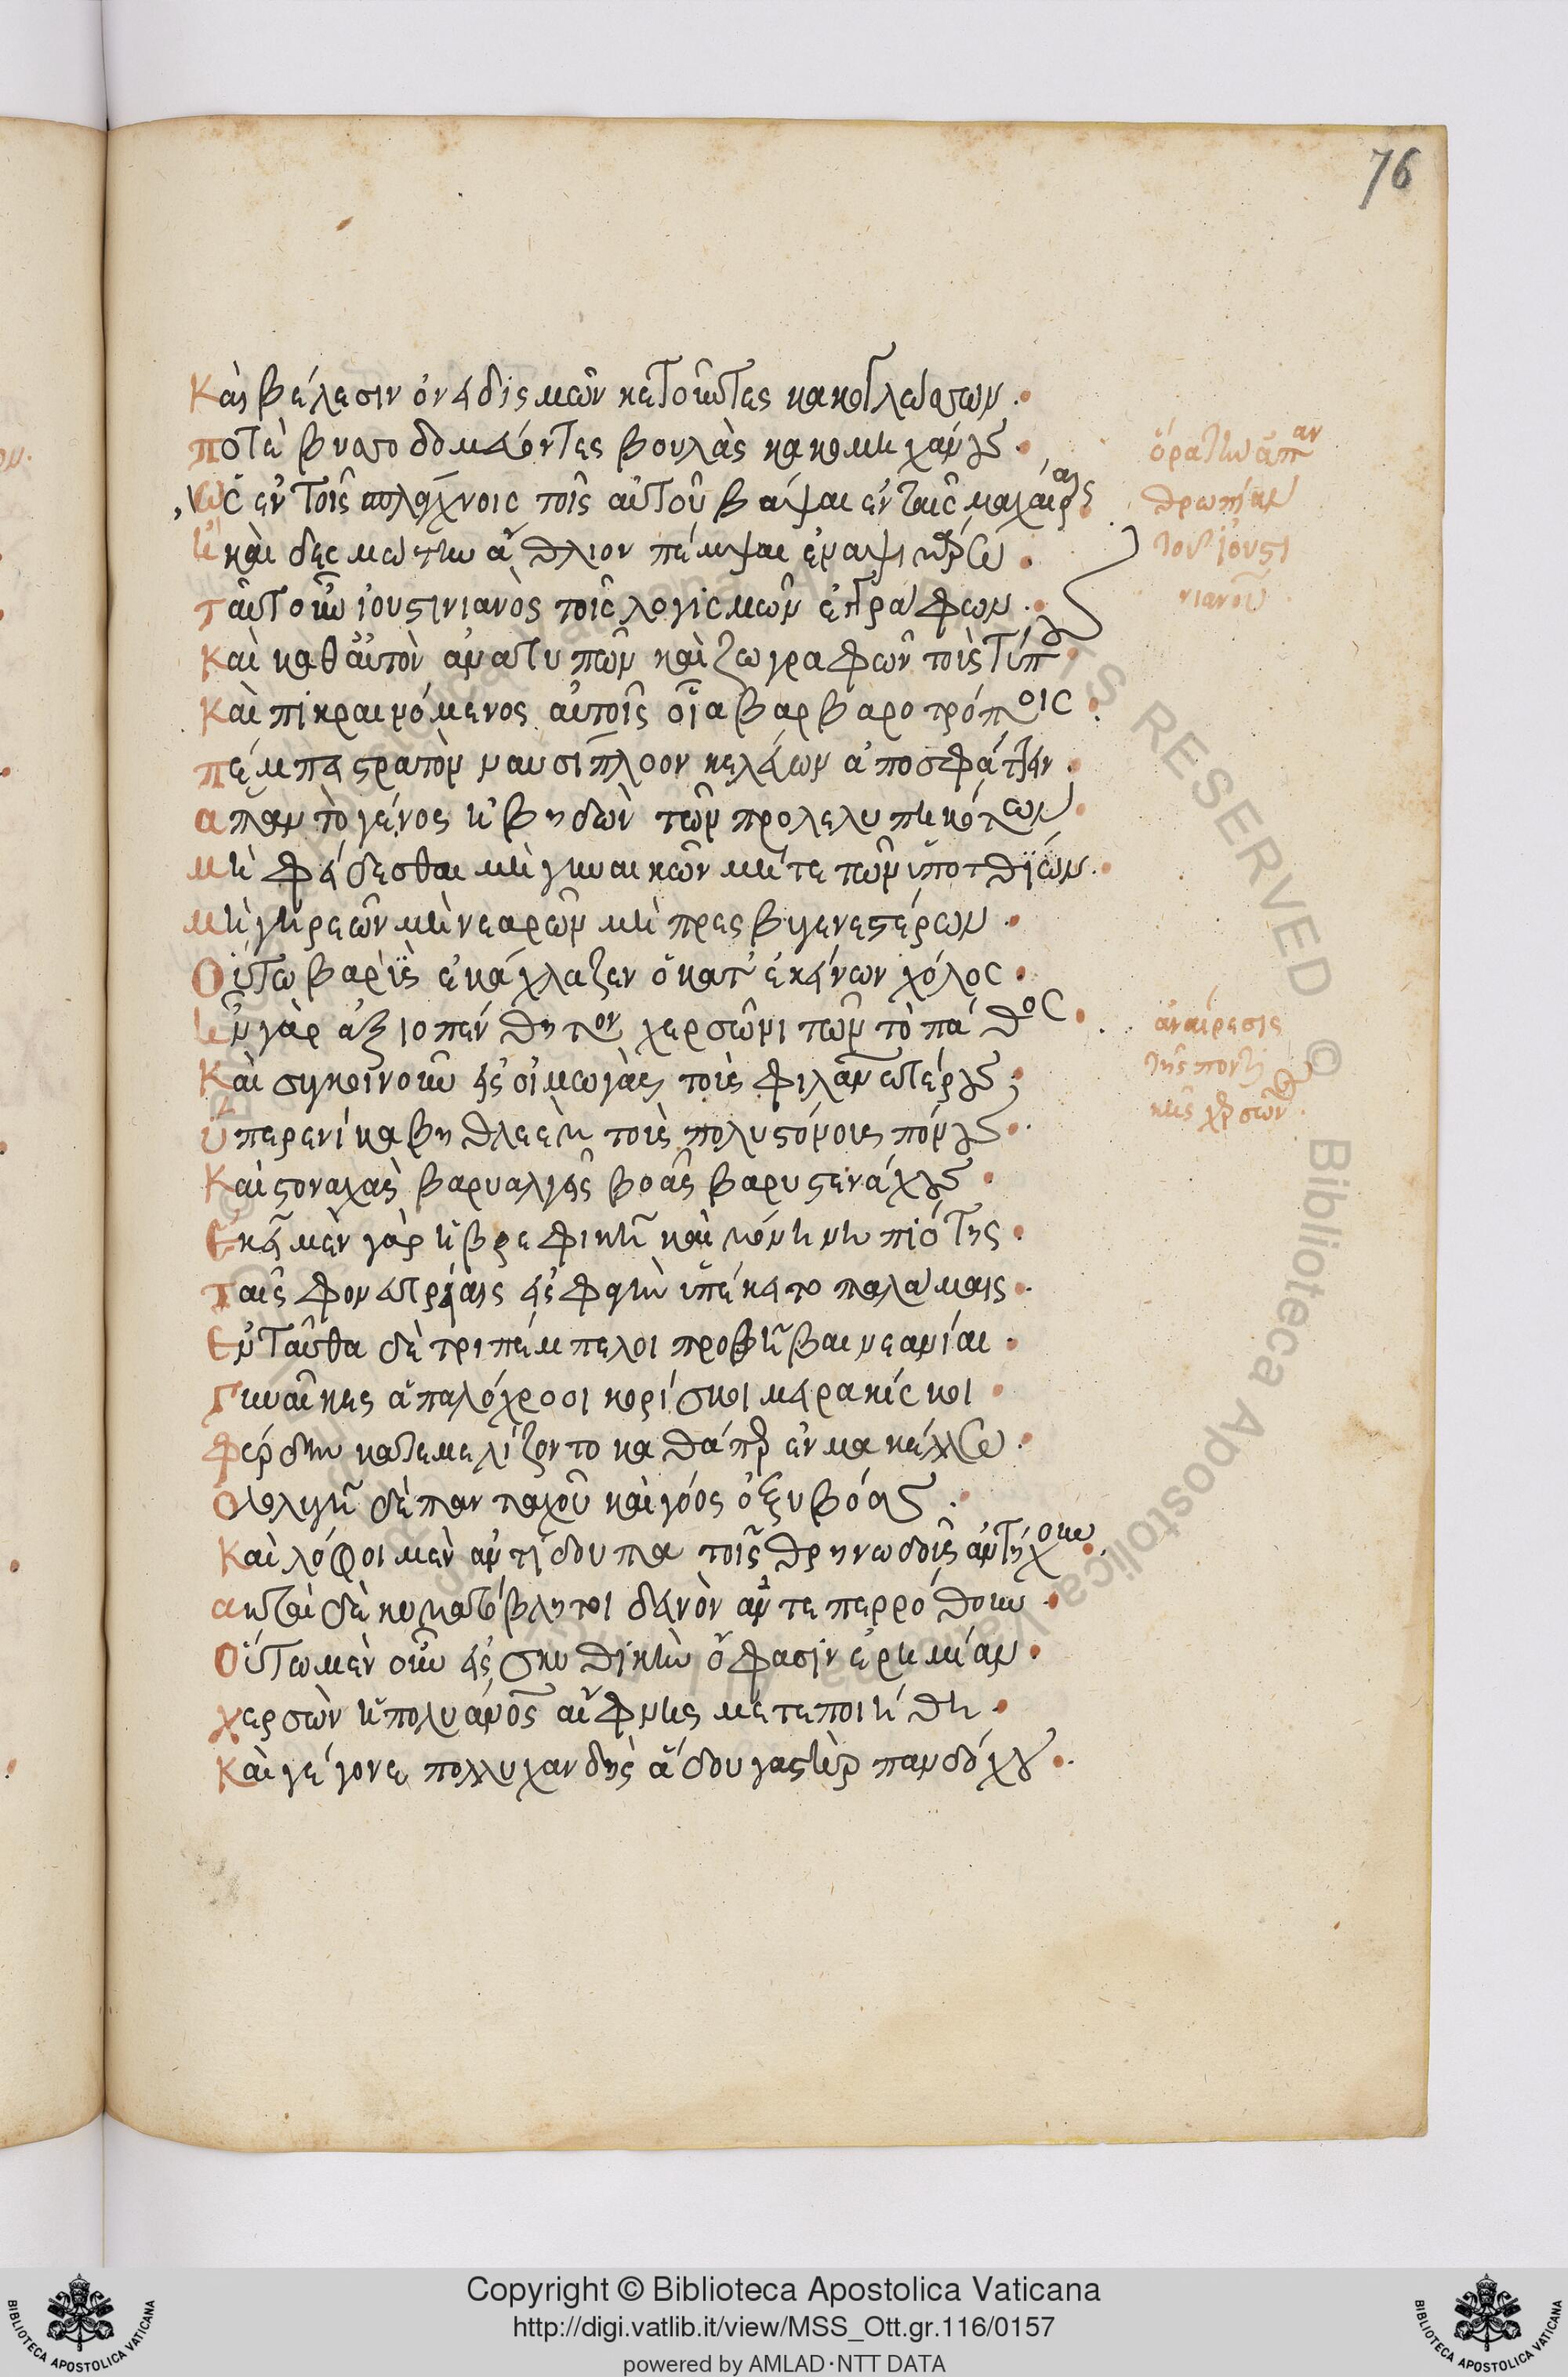 76
Καὶ βέλεσιν ὀνειδισμῶν κεντοῦντες κακογλώσσων.
ποτὲ βυσσοδομεύοντες βουλὰς κακομηχάνους.
ὡς ἐν τοῖς σπλάγχνοις τοῖς αὐτοῦ βάψαι ἐν ταῖς μαχαίραις
ἢ καὶ δεσμώτην ἄθλιον πέμψαι ἐν αψιμάρῳ.
ταῦτ' οὖν ἰουστινιανὸς τοῖς λογισμῶν ἐγγράφων.
Καὶ καθ' αὑτὸν ἀνατυπῶν καὶ ζωγραφῶν τοὺς τύπους
Καὶ πικραινόμενος αὐτοῖς οἷα βαρβαροτρόποις.
πέμπει στρατὸν ναυσίπλοον κελεύων ἀποσφάττειν.
ἅπαν τὸ γένος ἡβηδὸν τῶν προλελυπηκότων
μὴ φείδεσθαι μὴ γυναικῶν μήτε τῶν ὑποτιθίων.
μὴ γηρεῶν μὴ νεαρῶν μὴ πρεσβυγενεστέρων.
Οὕτω βαρὺς ἐκάχλαζεν ὁ κατ' ἐκείνων χόλος.
ἦν γὰρ ἀξιοπένθητον χερσωνιτῶν τὸ πάθος.
Καὶ συγκινοῦν εἰς οἰμωγὰς τοὺς φιλανθρωποτέρους.
ὑπερενίκα βηθλεὲμ τοὺς πολυστόνους πόνους.
Καὶ στοναχὰς βαρυαλγεῖς βοὰς βαρυστενάχους.
Ἐκεῖ μὲν γὰρ ἡ βρεφικὴ καὶ μόνη νηπιότης.
ταῖς φονευτρίαις εἰς σφαγὴν ὑπέκειτο παλάμαις.
Ἐνταῦθα δὲ τριπέμπελοι προβῆβαι νεανίαι.
Γυναῖκες ἁπαλόχροοι κορίσκοι μειρακίσκοι
φέρδην κατεμελίζοντο καθάπερ ἐν μακέλλῳ.
Ὀλολυγὴ δὲ πανταχοῦ καὶ γόος ὀξυβόας.
Καὶ λόφοι μὲν ἀντίδουπα τοῖς θρηνωδοῖς ἀντήχουν.
ἀκταὶ δὲ κυματόβλητοι δεινὸν ἀντεπερρόθουν.
Οὕτω μὲν οὖν εἰς σκυθικὴν ὅ φασιν ἐρημίαν.
χερσὼν ἡ πολυάνθρωπος αἴφνης μετεποιήθη.
Καὶ γέγονε πολυχανδὴς ᾅδου γαστὴρ πανδόχου.
ὅρα τὴν ἀπανθρωπίαν
τοῦ ἰουστινιανοῦ
ἀναίρεσις
τῆς ποντικῆς χερσῶνος.
Copyright © Biblioteca Apostolica Vaticana
http://digi.vatlib.it/view/MSS_Ott.gr.116/0157
powered by AMLAD·NTT DATA
BIBLIOTECA APOSTOLICA VATICANA
BIBLIOTECA APOSTOLICA VATICANA